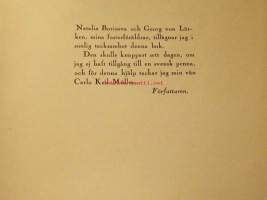 Natalia Borisova och Georg von Lüt-
ken, mina fosterföräldrar, tillägnar jag i
onslig tacksamhet denna bok.
Den skulle knappast sett dagen, om
jag ej haft tillgång till en svensk penna,
och för denna hjälp tackar jag min vän
Carlo Keil-Möller.
Författaren.